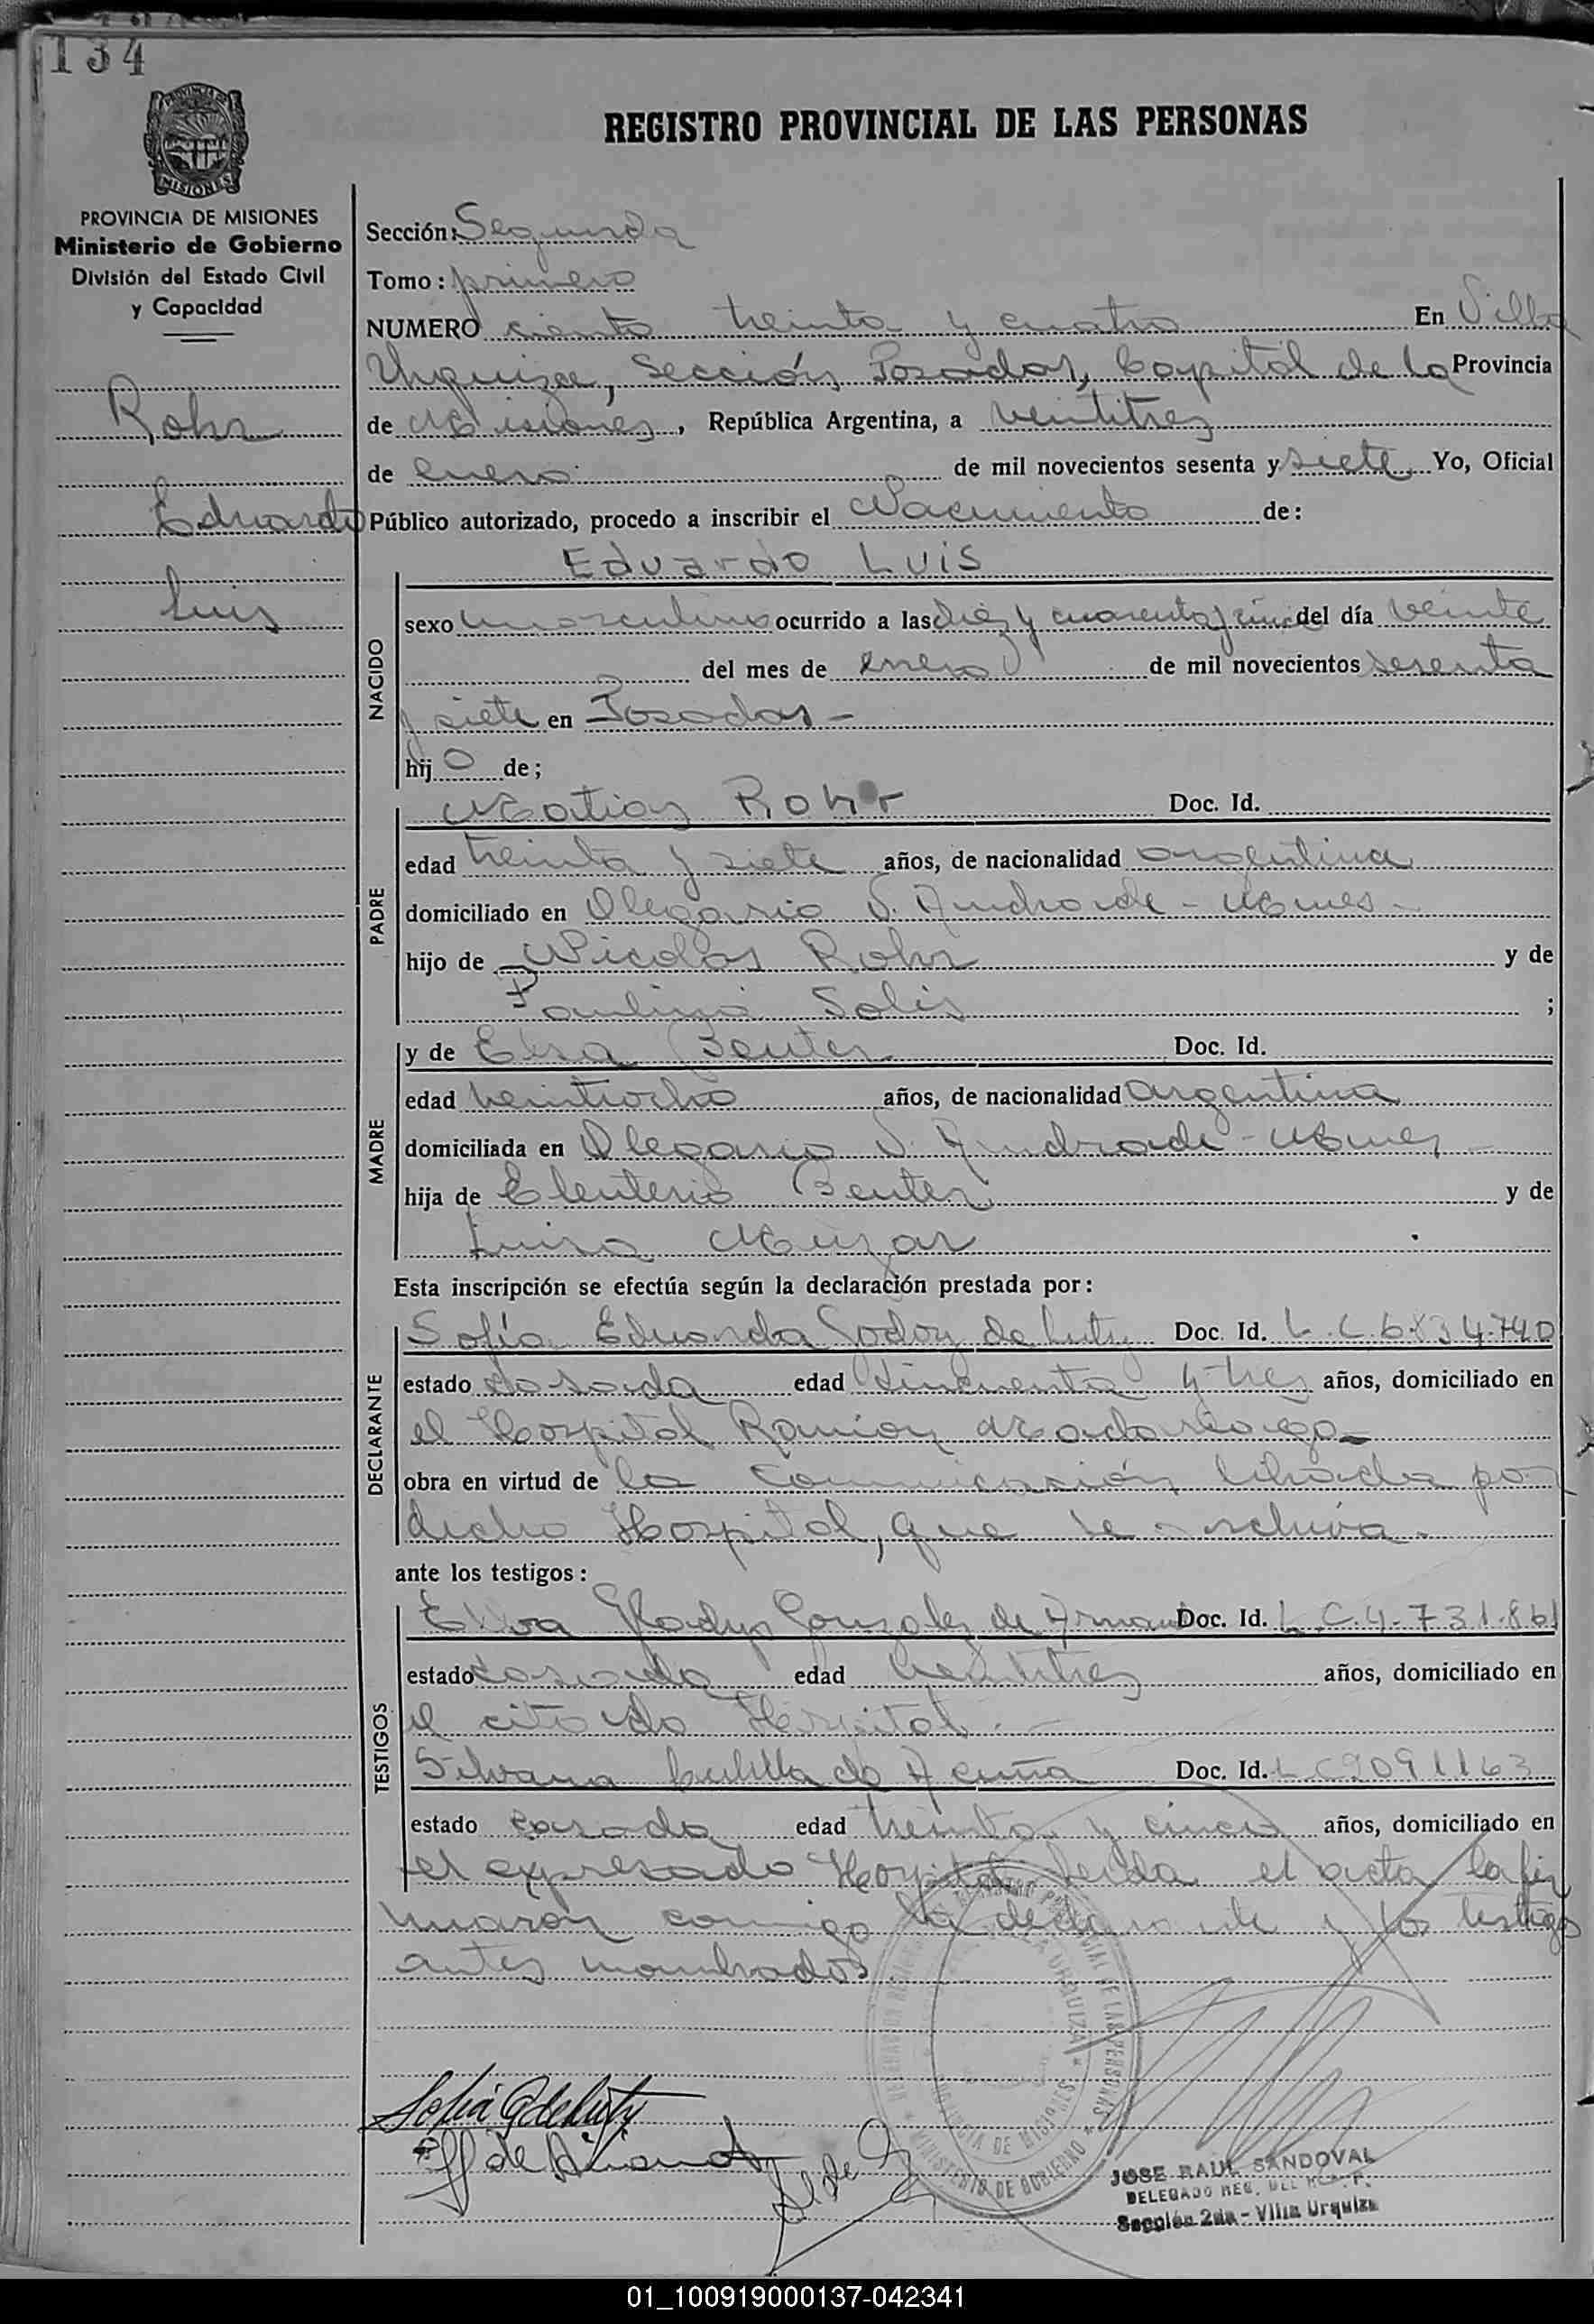 134
PROVINCIA DE MISIONES
Ministerio de Gobierno
División del Estado Civil
y Capacidad
Rohr
Eduardo
Luis
REGISTRO PROVINCIAL DE LAS PERSONAS
Sección: Segunda
Tomo: primero
NUMERO ciento treinta y cuatro En Villa
Urquiza, Sección Posadas, Capital de la Provincia
de Misiones, República Argentina, a veintitres
de enero de mil novecientos sesenta y siete Yo, Oficial
Público autorizado, procedo a inscribir el Nacimiento de:
NACIDO
Eduardo Luis
sexo masculino ocurrido a las diez y cuarenta y cinco del día veinte
del mes de enero de mil novecientos sesenta
y siete en Posadas -
hijo de;
PADRE
Matias Rohr Doc. Id.
edad treinta y siete años, de nacionalidad argentina
domiciliado en Olegario V. Andrade - Mnes -
hijo de Nicolas Rohr y de
Paulina Solis ;
MADRE
y de Elsa Beuter Doc. Id.
edad veintiocho años, de nacionalidad argentina
domiciliada en Olegario V. Andrade - Mnes -
hija de Eleuterio Beuter y de
Luisa
Esta inscripción se efectúa según la declaración prestada por:
DECLARANTE
Sofía Eduarda Godoy de Luty Doc. Id. L.C. 6.834.740
estado casada edad cincuenta y tres años, domiciliado en
el Hospital Ramón Madariaga
obra en virtud de la comunicación librada por
dicho Hospital, que se archiva.
ante los testigos:
TESTIGOS
Elva Gladys Gonzalez de Doc. Id. L.C. 4.731.861
estado casada edad veintitres años, domiciliado en
el citado Hospital. -
Silvana de Acuña Doc. Id. L C 2091163
estado casada edad treinta y cinco años, domiciliado en
el expresado Hospital. Leida el acta la fir
maron conmigo la declarante y los testigos
antes nombrados
REGISTRO PROVINCIAL DE LAS PERSONAS
MINISTERIO DE GOBIERNO
VILLA URQUIZA
PROVINCIA DE MISIONES
Sofia G de Luty
JOSE RAUL SANDOVAL
DELEGADO REG. DEL
Sección 2da - Villa Urquiza
01_100919000137-042341